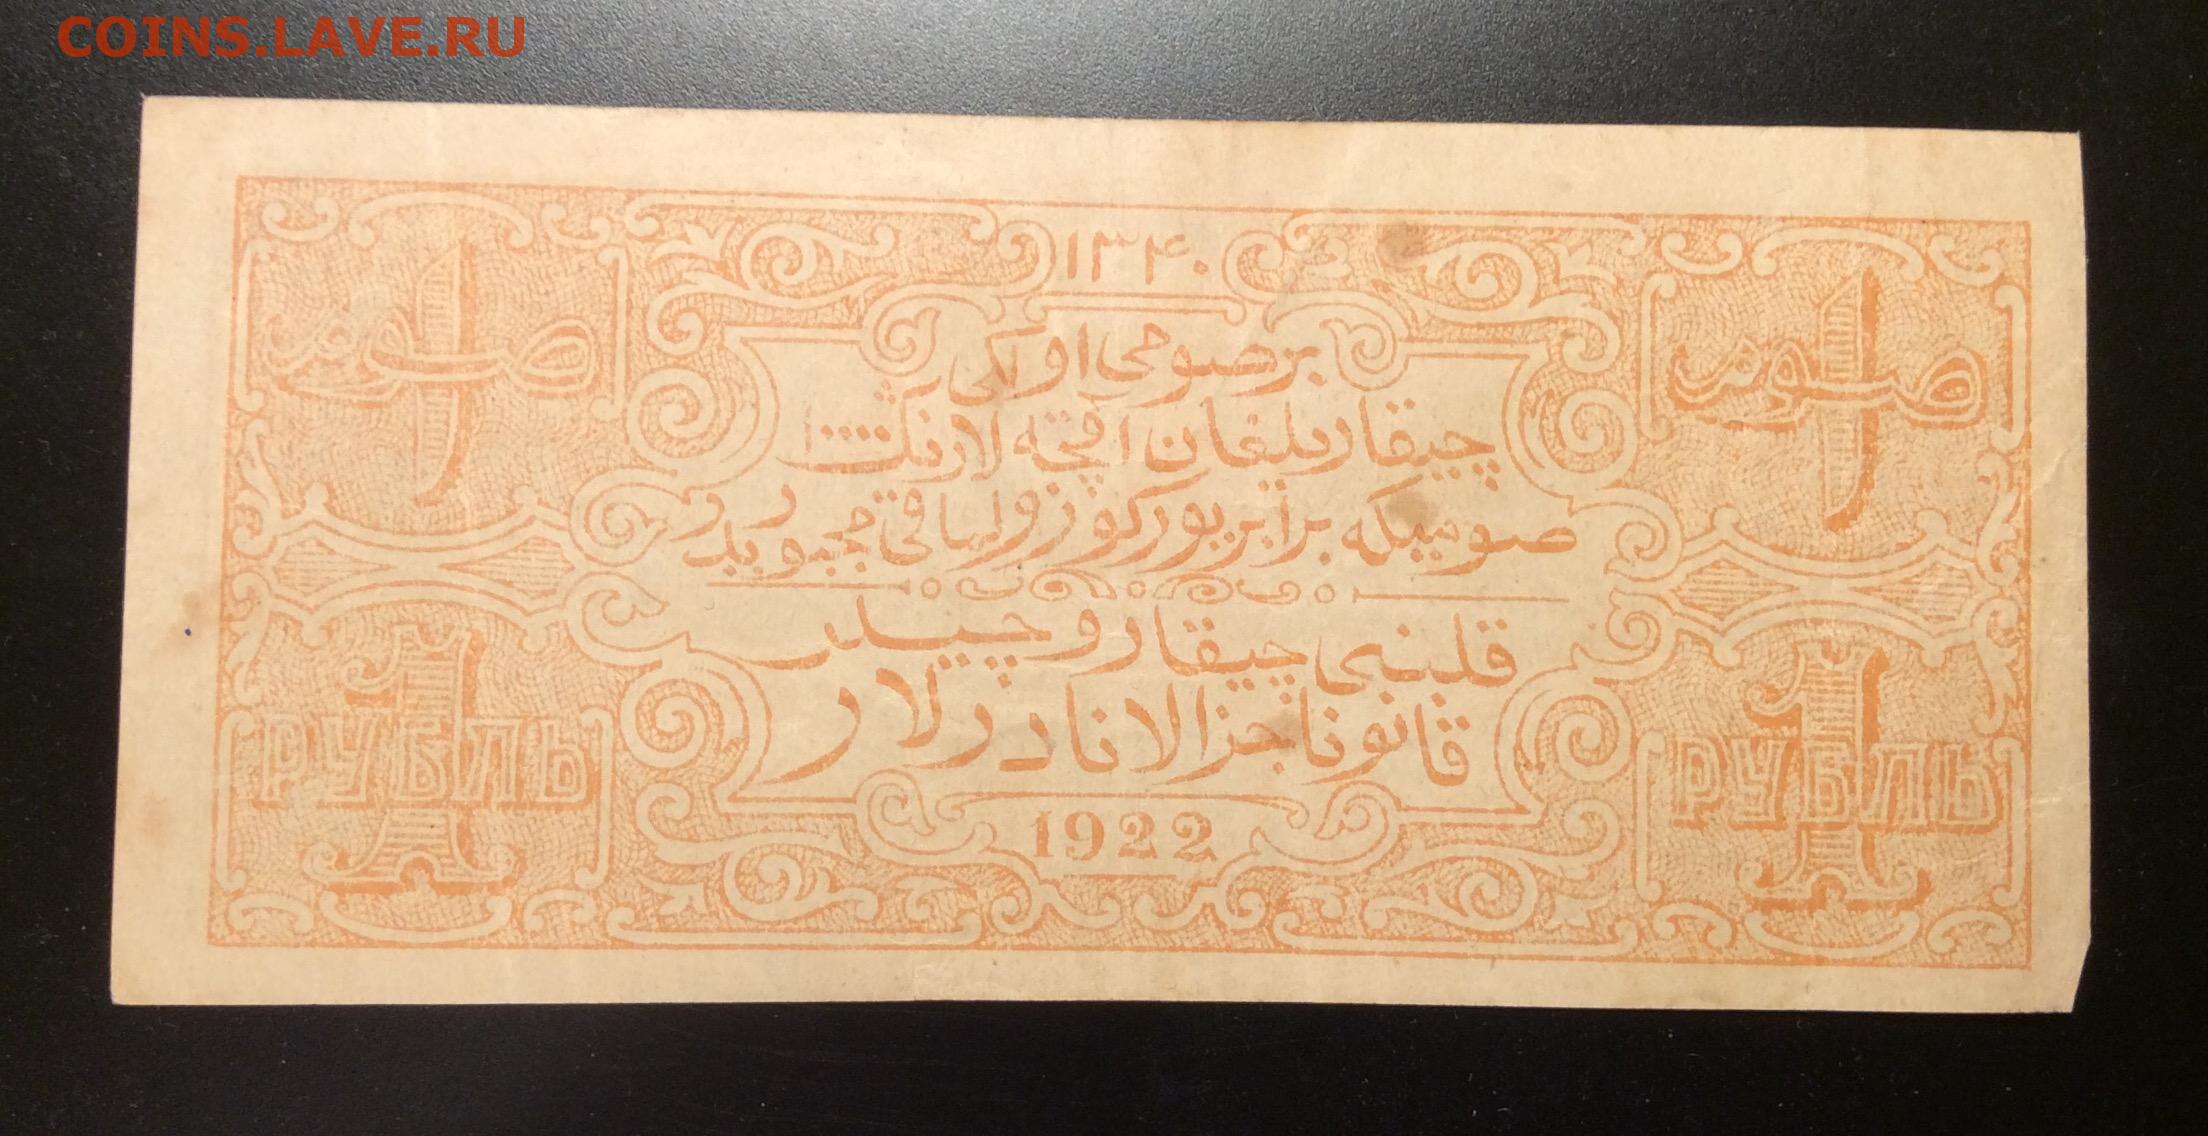 COINS.LAVE.RU
١٣٤٠
١ صوم
١ صوم
برصومی اولکی
چیقاریلغان آقچه لارنك ١٠٠٠٠
صومیکه برابر یورکوزولماقی مجبوریدور
قلبنی چیقاروچیلر
قانونا جزالانادرلار
1 РУБЛЬ
1 РУБЛЬ
1922